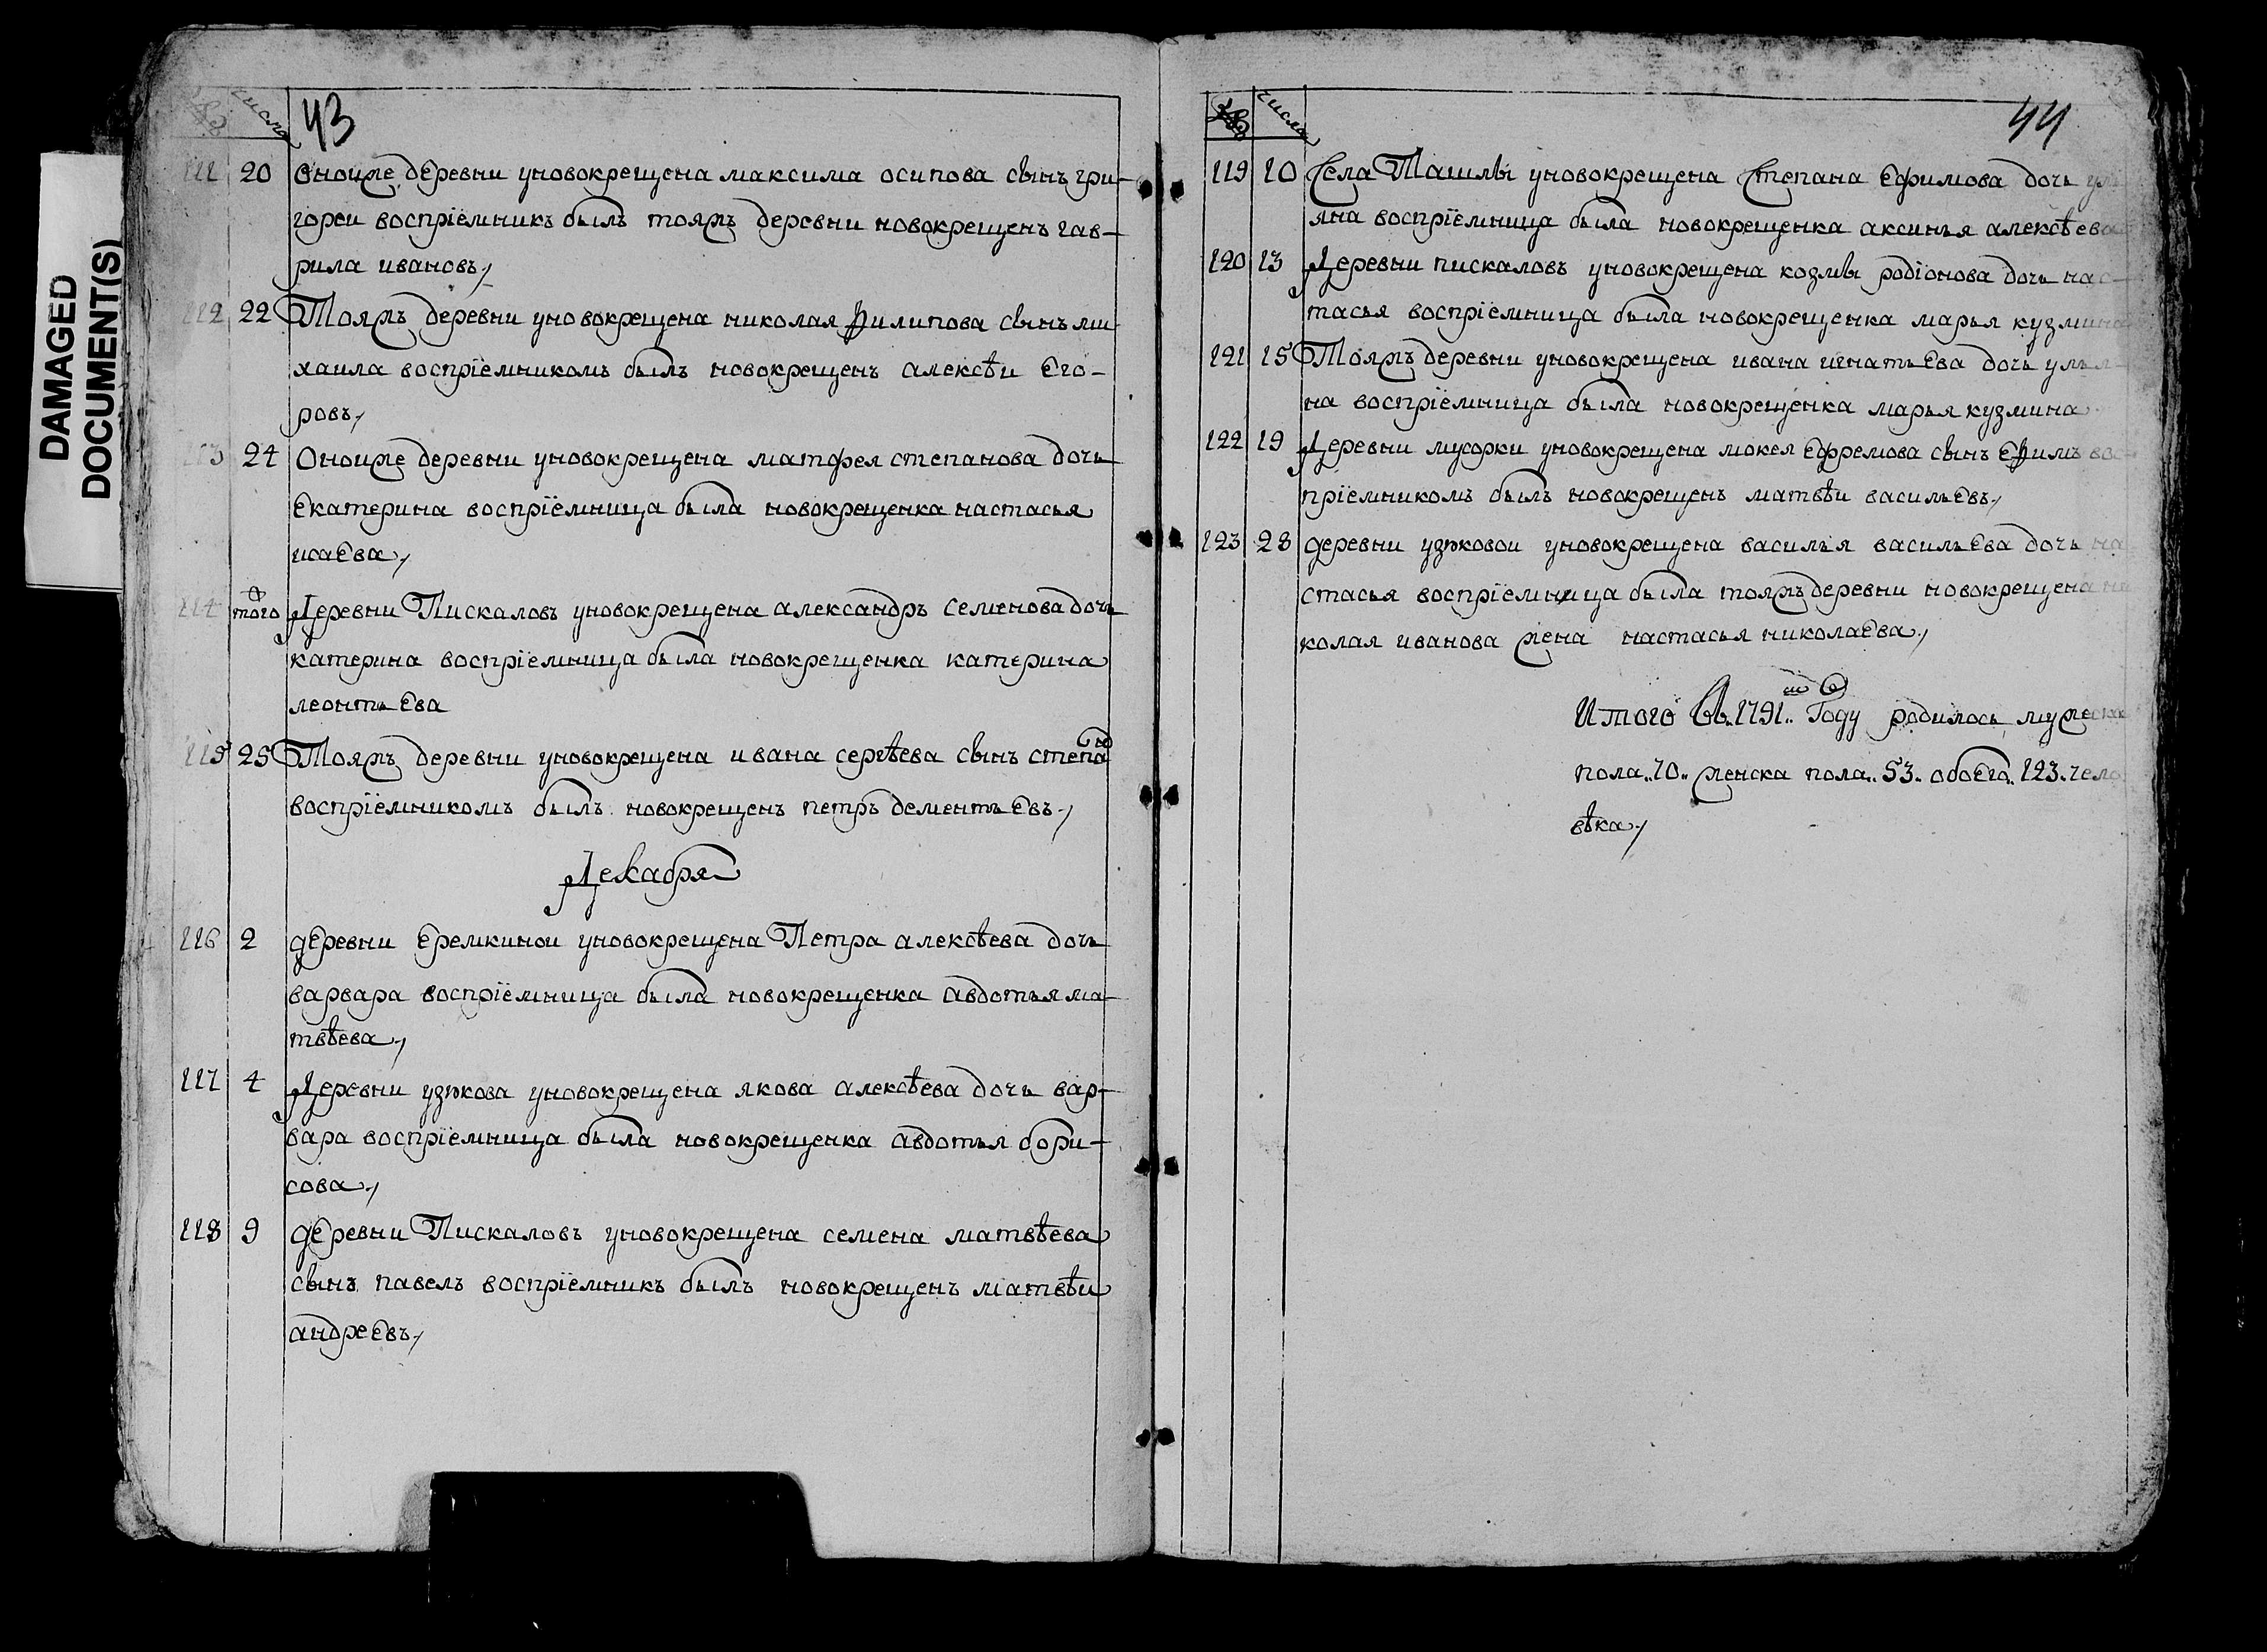 DAMAGED
DOCUMENT(S)
числа
43
111 20 Оноиже деревни уновокрещена максима осипова сынъ гри-
гореи воспріемникъ былъ тояжъ деревни новокрещенъ гав-
рила ивановъ,
112 22 Тояжъ деревни уновокрещена николая филипова сынъ ми-
хаила воспріемникомъ былъ новокрещенъ алексѣи Его-
ровъ,
113 24 Оноиже деревни уновокрещена матфея степанова дочь
Екатерина воспріемница была новокрещенка настасья
исаЕва,
114 того Деревни Пискаловъ уновокрещена александръ семенова дочь
катерина воспріемница была новокрещенка катерина
леонтьЕва
115 25 Тояжъ деревни уновокрещена ивана сергѣева сынъ степанъ
воспріемникомъ былъ новокрещенъ петръ дементьЕвъ,
Декабря
116 2 деревни Еремкинои уновокрещена Петра алексѣева дочь
варвара воспріемница была новокрещенка авдотья ма-
твѣева,
117 4 Деревни узюкова уновокрещена якова алексѣева дочь вар-
вара воспріемница была новокрещенка авдотья бори-
сова,
118 9 деревни Пискаловъ уновокрещена семена матвѣева
сынъ павелъ воспріемникъ былъ новокрещенъ матвѣи
андреЕвъ,
числа
44
119 10 Села Ташлы уновокрещена Степана Ефимова дочь уль
яна воспріемница была новокрещенка аксинья алексѣева
120 13 Деревни пискаловъ уновокрещена козмы родіонова дочь нас-
тасья воспріемница была новокрещенка марья кузмина
121 15 Тояжъ деревни уновокрещена ивана игнатьЕва дочь улья-
на воспріемница была новокрещенка марья кузмина
122 19 Деревни мусорки уновокрещена мокея Ефремова сынъ Ефимъ вос-
пріемникомъ былъ новокрещенъ матвѣи васильЕвъ,
123 28 деревни узюковои уновокрещена василья васильЕва дочь на
стасья воспріемница была тояжъ деревни новокрещена ни
колая иванова жена настасья николаЕва,
Итого Въ 1791 мъ Году родилось мужеска
пола 70 женска пола 53 обоЕго 123 чело
вѣка,